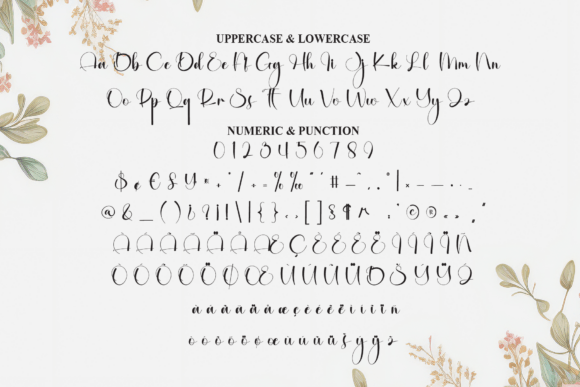 UPPERCASE & LOWERCASE
Aa Bb Cc Dd Ee Ff Gg Hh Ii Jj Kk Ll Mm Nn
Oo Pp Qq Rr Ss Tt Uu Vv Ww Xx Yy Zz
NUMERIC & PUNCTION
0 1 2 3 4 5 6 7 8 9
$ ¢ € £ ¥ % ‰ # |
@ & _ ( ) ¿ ? ¡ ! \ | { } [ ] § ¶ © ®
Æ Ç È É Ê Ë Ì Í Î Ï Ñ
Ò Ó Ô Õ Ö Ø Œ Ù Ú Û Ü Ð Š Ý Ÿ Ž
à á â ã ä å æ ç è é ê ë ì í î ï ñ